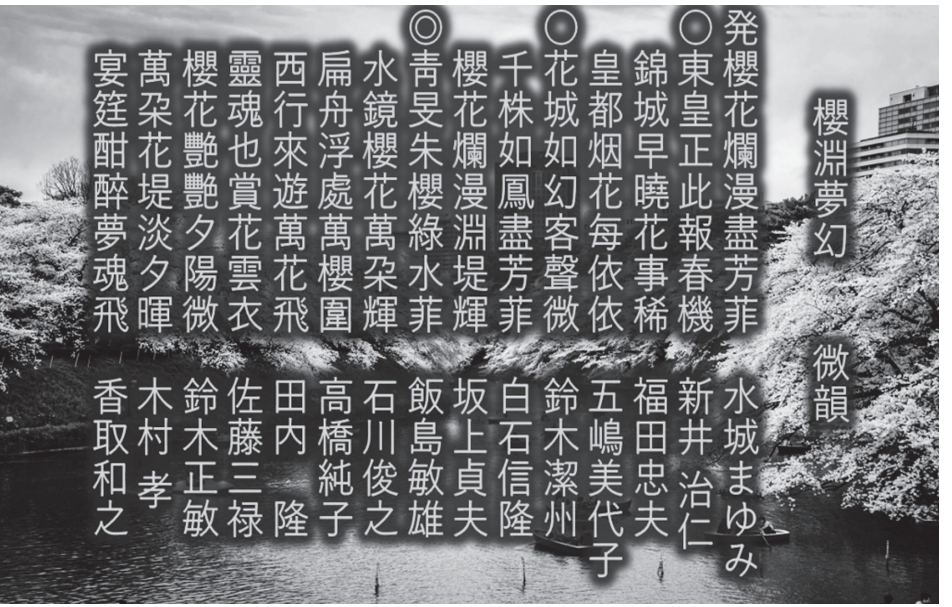 櫻淵夢幻　微韻
発櫻花爛漫盡芳菲　水城まゆみ
○東皇正此報春機　新井 治仁
錦城早曉花事稀　福田忠夫
皇都烟花每依依　五嶋美代子
○花城如幻客聲微　鈴木潔州
千株如鳳盡芳菲　白石信隆
櫻花爛漫淵堤輝　坂上貞夫
◎靑旻朱櫻綠水菲　飯島敏雄
水鏡櫻花萬朶輝　石川俊之
扁舟浮處萬櫻圍　高橋純子
西行來遊萬花飛　田内　隆
靈魂也賞花雲衣　佐藤三禄
櫻花艷艷夕陽微　鈴木正敏
萬朶花堤淡夕暉　木村 孝
宴筵酣醉夢魂飛　香取和之